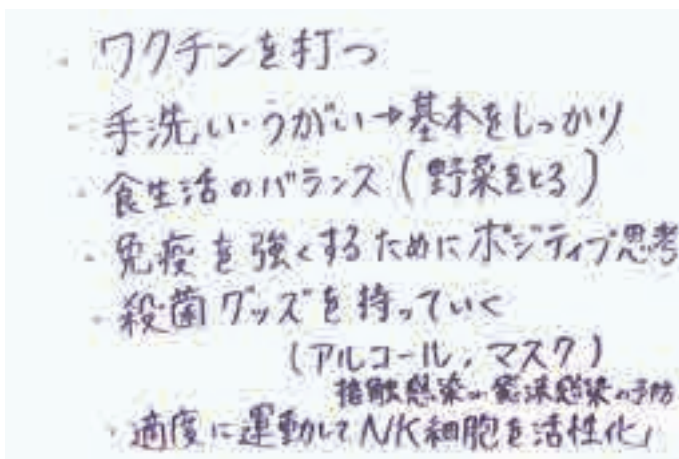 ・ワクチンを打つ
・手洗い・うがい→基本をしっかり
・食生活のバランス(野菜をとる)
・免疫を強くするためにポジティブ思考
・殺菌グッズを持っていく
(アルコール,マスク)
接触感染や飛沫感染の予防
・適度に運動してNK細胞を活性化」